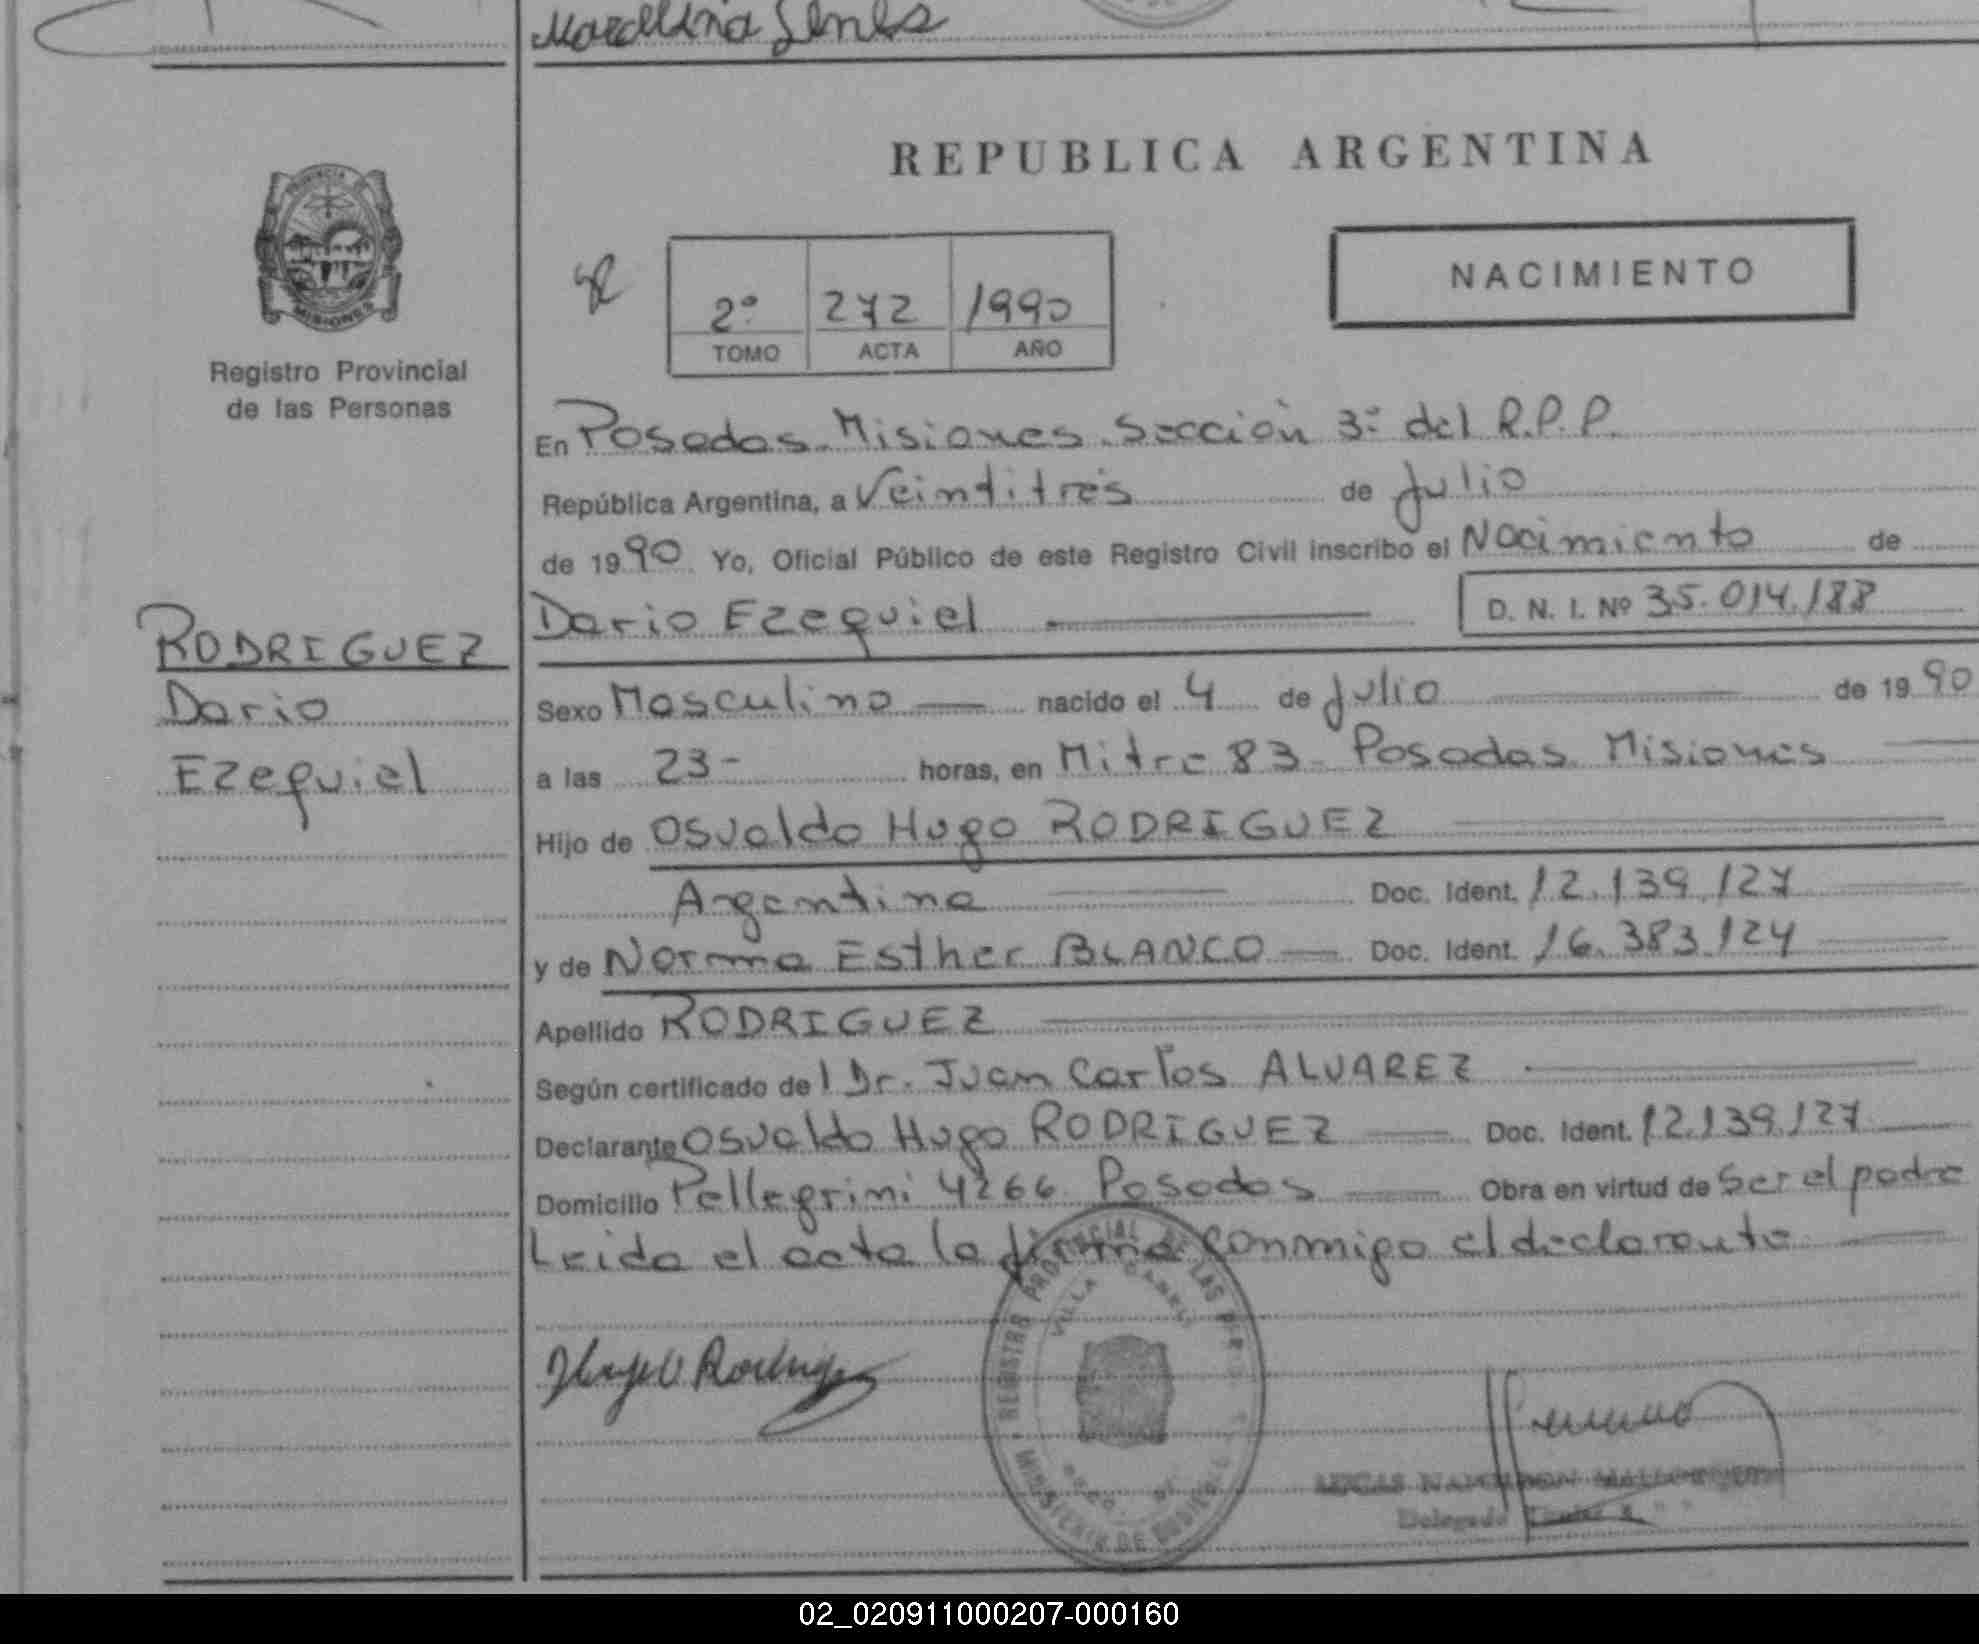 Marcelina
REPUBLICA ARGENTINA
PROVINCIA DE
MISIONES
Registro Provincial
de las Personas
NACIMIENTO
2º 272 1990
TOMO ACTA AÑO
En Posadas Misiones Sección 3º del R.P.P.
República Argentina, a Veintitrés de Julio
de 1990 Yo, Oficial Público de este Registro Civil inscribo el Nacimiento de
Dario Ezequiel D. N. I. Nº 35.014.188
RODRIGUEZ
Dario
Ezequiel
Sexo Masculino nacido el 4 de Julio de 1990
a las 23- horas, en Mitre 83 - Posadas Misiones
Hijo de Osvaldo Hugo RODRIGUEZ
Argentina Doc. Ident. 12.139.127
y de Norma Esther BLANCO Doc. Ident. 16.383.124
Apellido RODRIGUEZ
Según certificado del Dr. Juan Carlos ALVAREZ
Declarante Osvaldo Hugo RODRIGUEZ Doc. Ident. 12.139.127
Domicilio Pellegrini 4266 Posadas Obra en virtud de Ser el padre
Leida el acta la firma conmigo el declarante
REGISTRO PROVINCIAL DE LAS
VILLA
MINISTERIO DE
Delegado
02_020911000207-000160